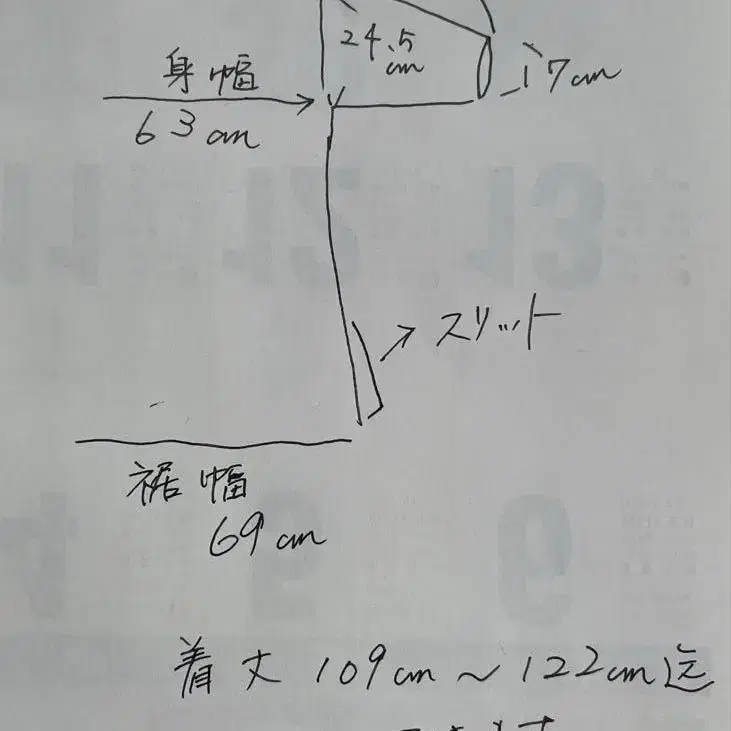 24.5
cm
身幅
17cm
63cm
スリット
裾幅
69cm
着丈 109cm～122cm迄